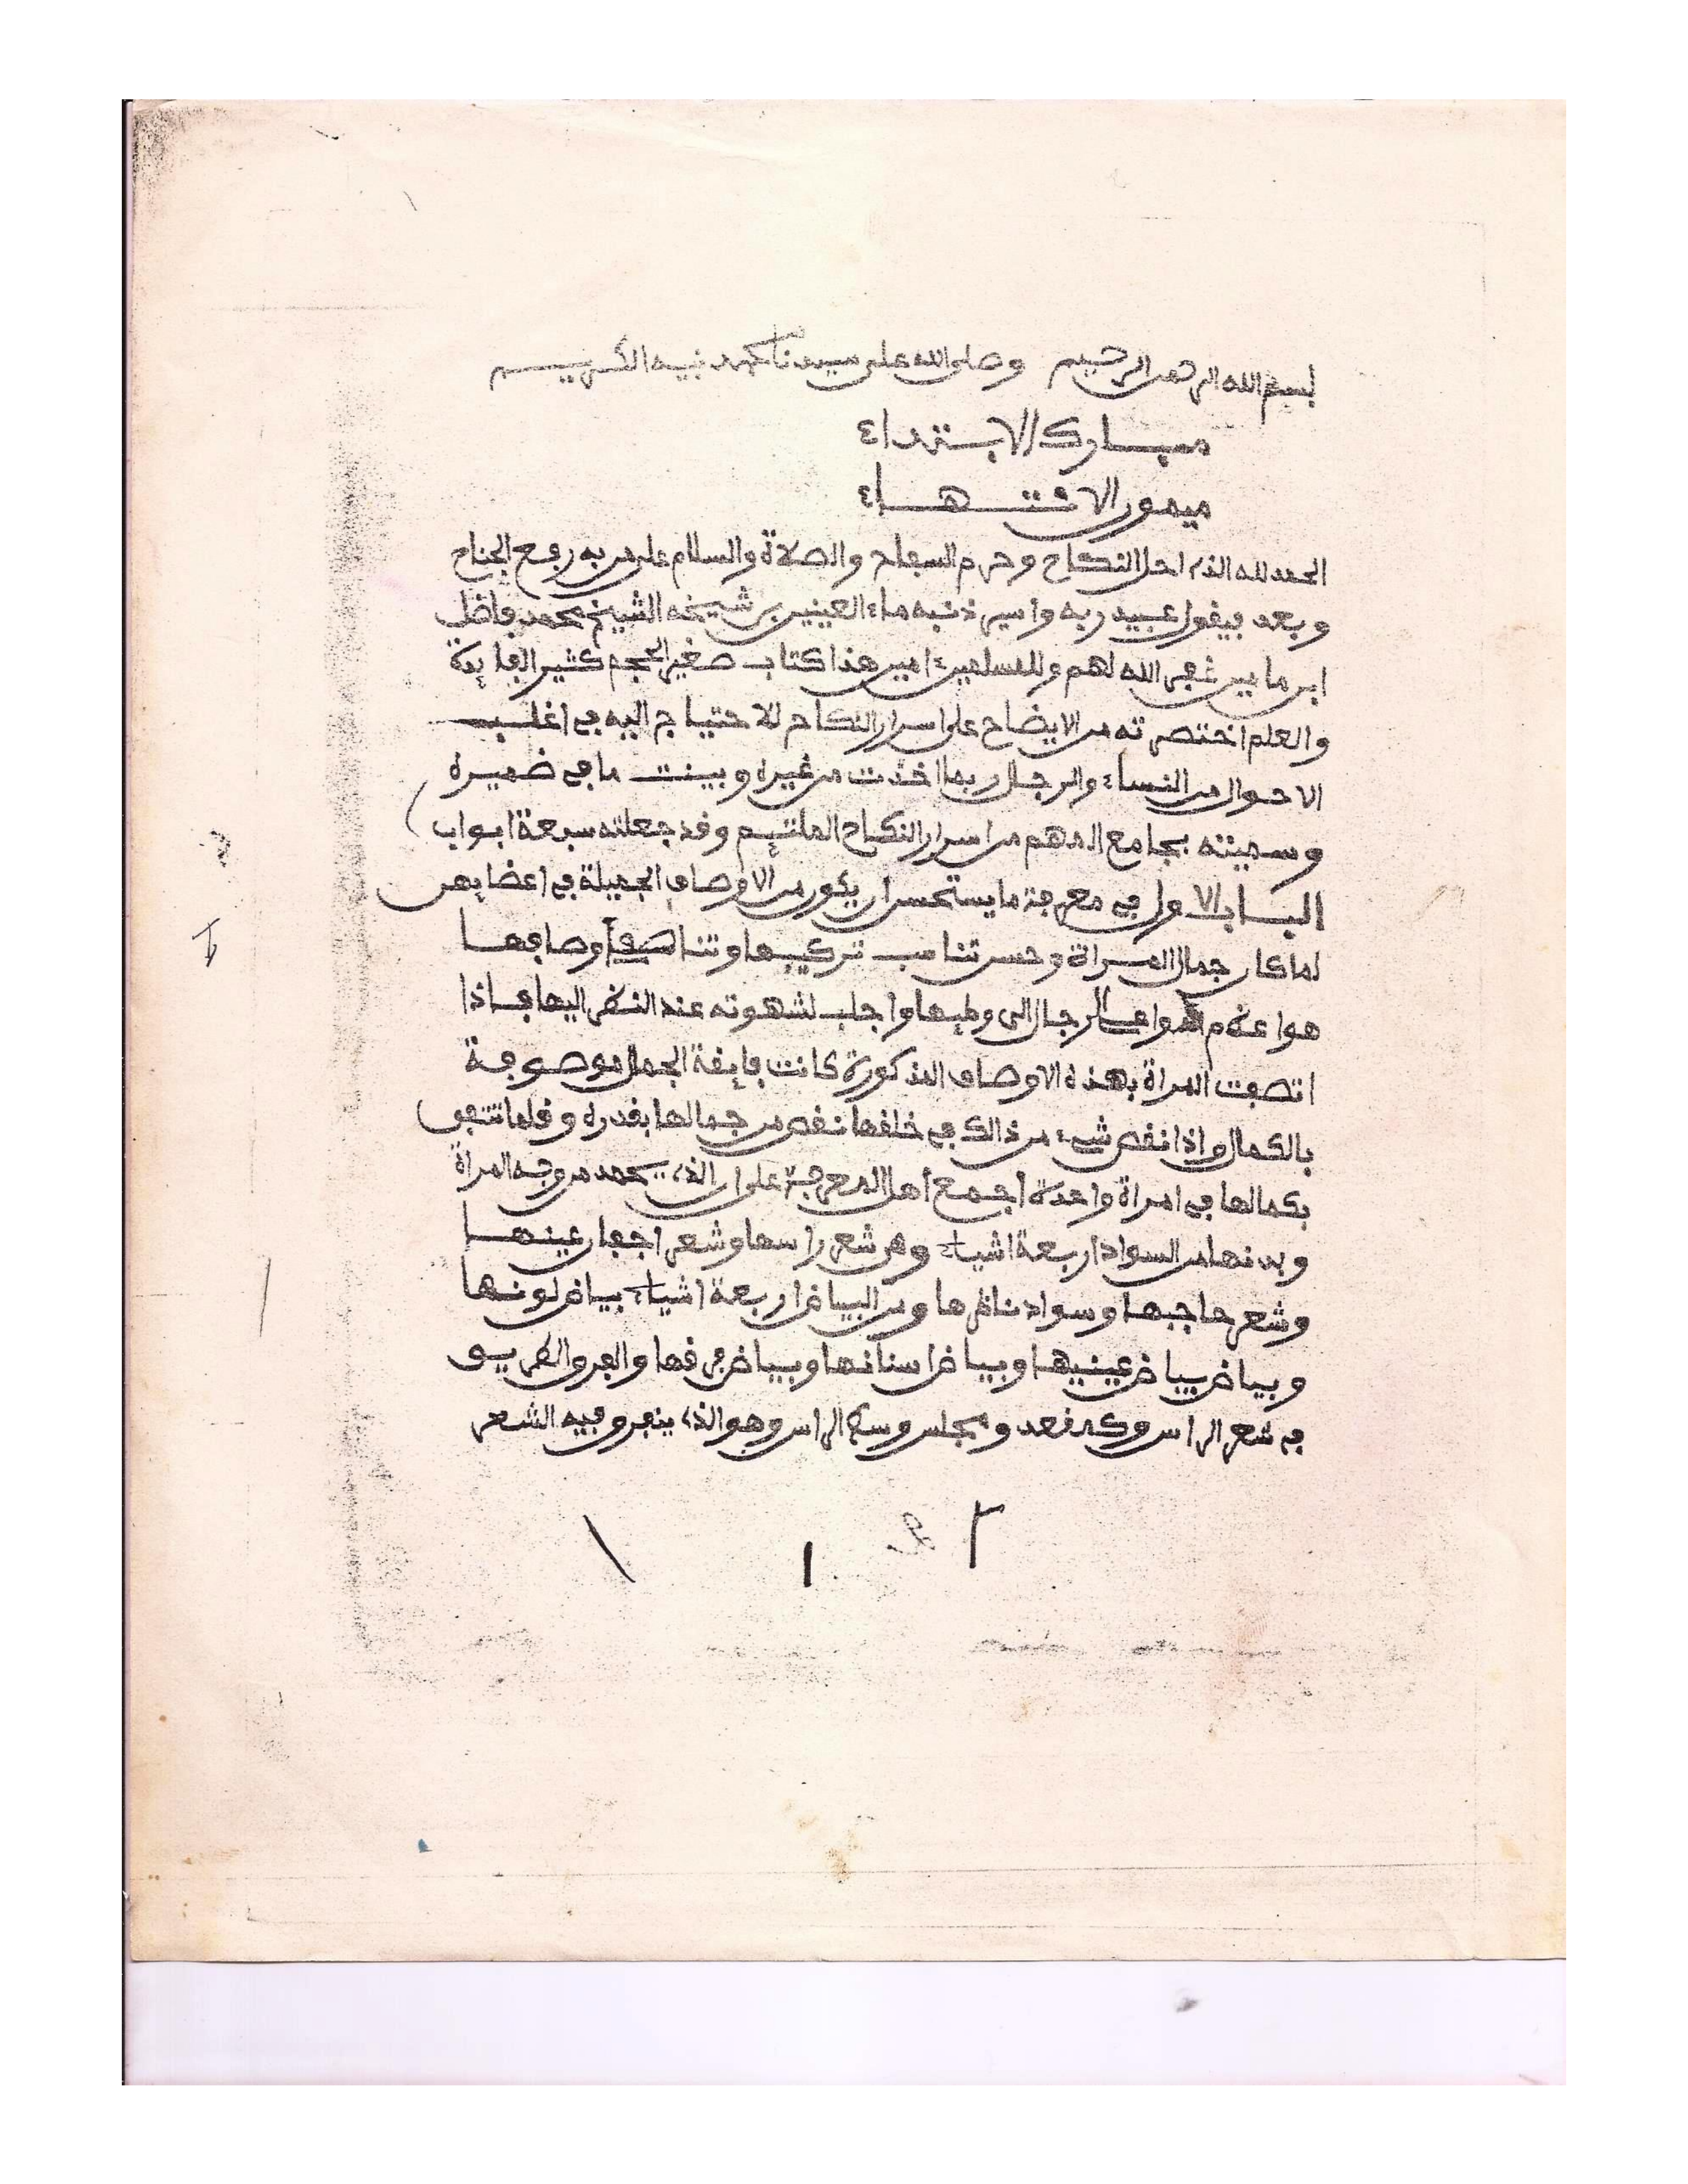 بسم الله الرحمن الرحيم وصلى الله على سيدنا محمد نبيه الكريم
مبارك الابتداء
ميمون الانتهاء
الحمد لله الذي احل النكاح وحرم السفاح والصلاة والسلام على من به رفع الجناح
وبعد فيقول عبيد ربه واسير ذنبه ماء العينين بن شيخه الشيخ محمد فاضل
ابن مامين غفر الله لهم وللمسلمين ءامين هذا كتاب صغير الحجم كثير الفايدة
والعلم اختصرته من الايضاح على اسرار النكاح للاحتياج اليه في اغلب
الاحوال من النساء والرجال ربما اخذت من غيره وبينت ما في ضميره
وسميته بجامع المهم من اسرار النكاح الملتئم وقد جعلته سبعة ابواب
الباب الاول في معرفة ما يستحسن ان يكون من الاوصاف الجميلة في اعضايهن
لما كان جمال المراة وحسن تناسب تركيبها وتناصف اوصافها
هو اعظم الدواعي للرجال الى وطيها واجلب لشهوته عند النظر اليها فاذا
اتصفت المراة بهذه الاوصاف المذكورة كانت فايقة الجمال موصوفة
بالكمال واذا نقص شيء من ذالك في خلقها نقص من جمالها بقدره وقلما تتفق
بكمالها في امراة واحدة اجمع أهل المعرفة على ان الذي يحمد من وجه المراة
وبدنها من السواد اربعة اشياء وهي شعر راسها وشعر اجفان عينها
وشعر حاجبها وسواد ناظرها ومن البياض اربعة اشياء بياض لونها
وبياض بياض عينيها وبياض اسنانها وبياض فرقها والفرق الطريق
في شعر الراس وكمقعد ومجلس وسط الراس وهو الذي ينفرق فيه الشعر